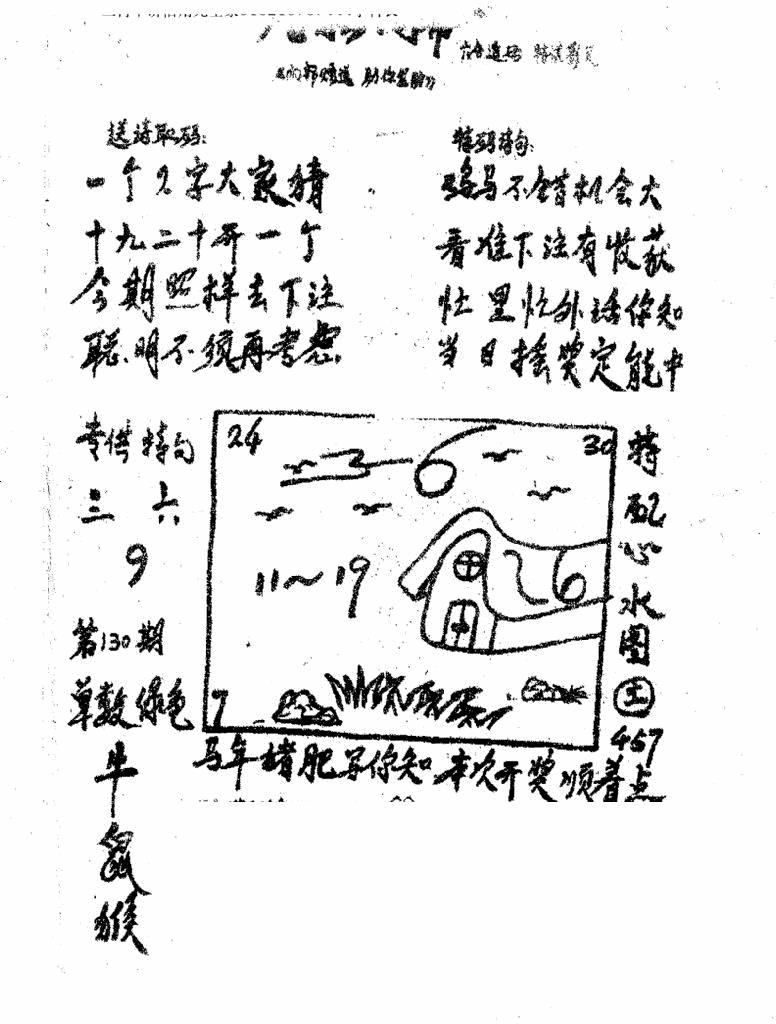 送诗取码:
一个久字大家猜
十九二十开一个
今期照样去下注
聪明不须再考虑
特码诗句:
鸡马不错机会大
看准下注有收获
忙里忙外话你知
当日摇奖定能中
专供特句
三 六
9
第130期
单数绿色
牛
鼠
猴
24
30
11~19
26
7
特配心水图
土
457
马年猪肥写你知 本次开奖顺着点